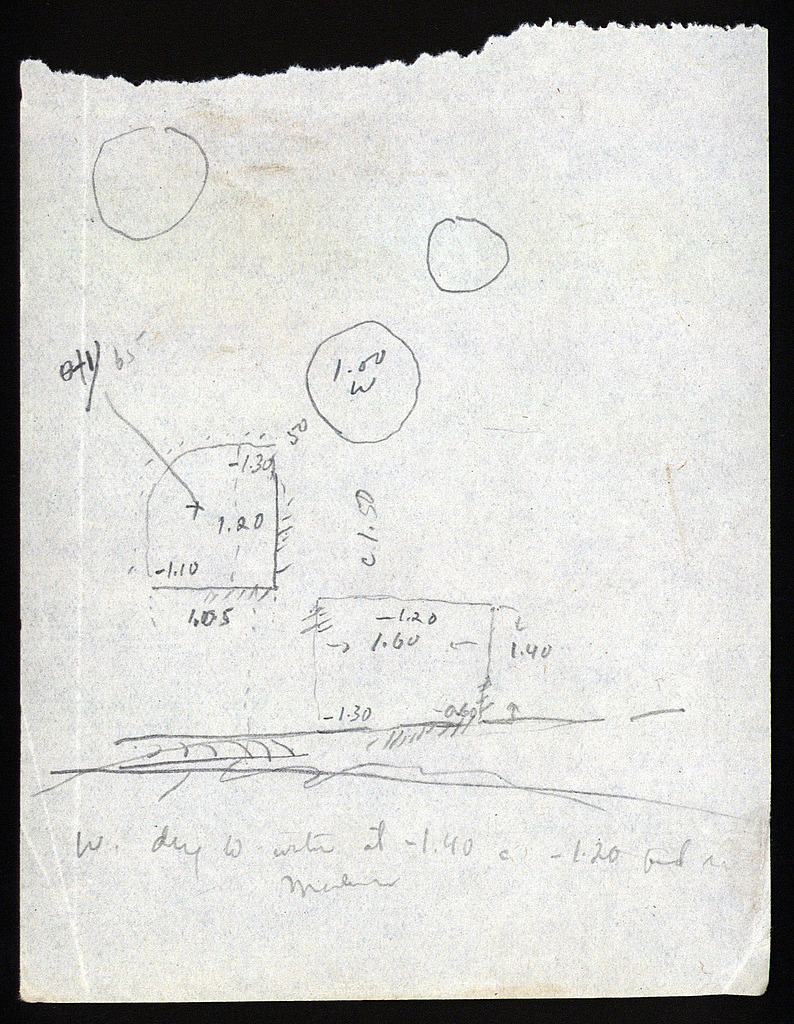 1.00
W
65
.50
-1.30
1.20
-1.10
1.05
0.50
-1.20
1.60
1.40
-1.30
-0.60
W. dug to water at -1.40 -1.20